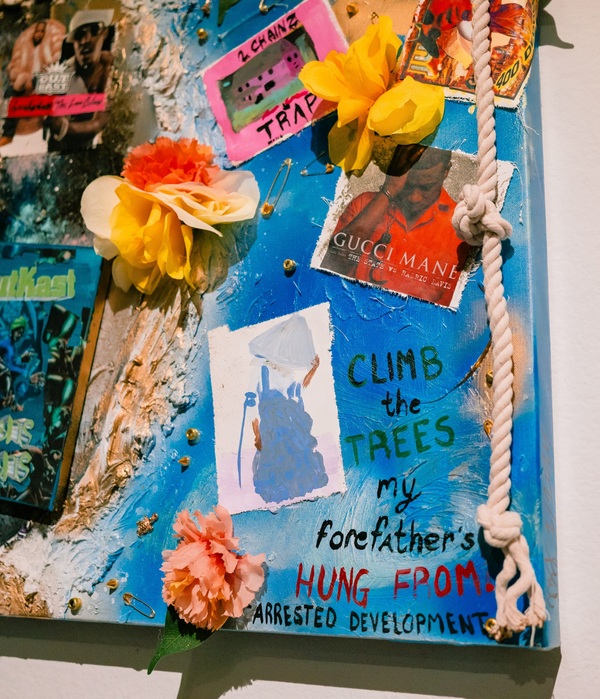 OUT
KAST
2 CHAINZ
TRAP
400
GUCCI MANE
THE STATE VS RADRIC DAVIS
utKast
CLIMB
the
TREES
my
forefather's
HUNG FROM.
ARRESTED DEVELOPMENT